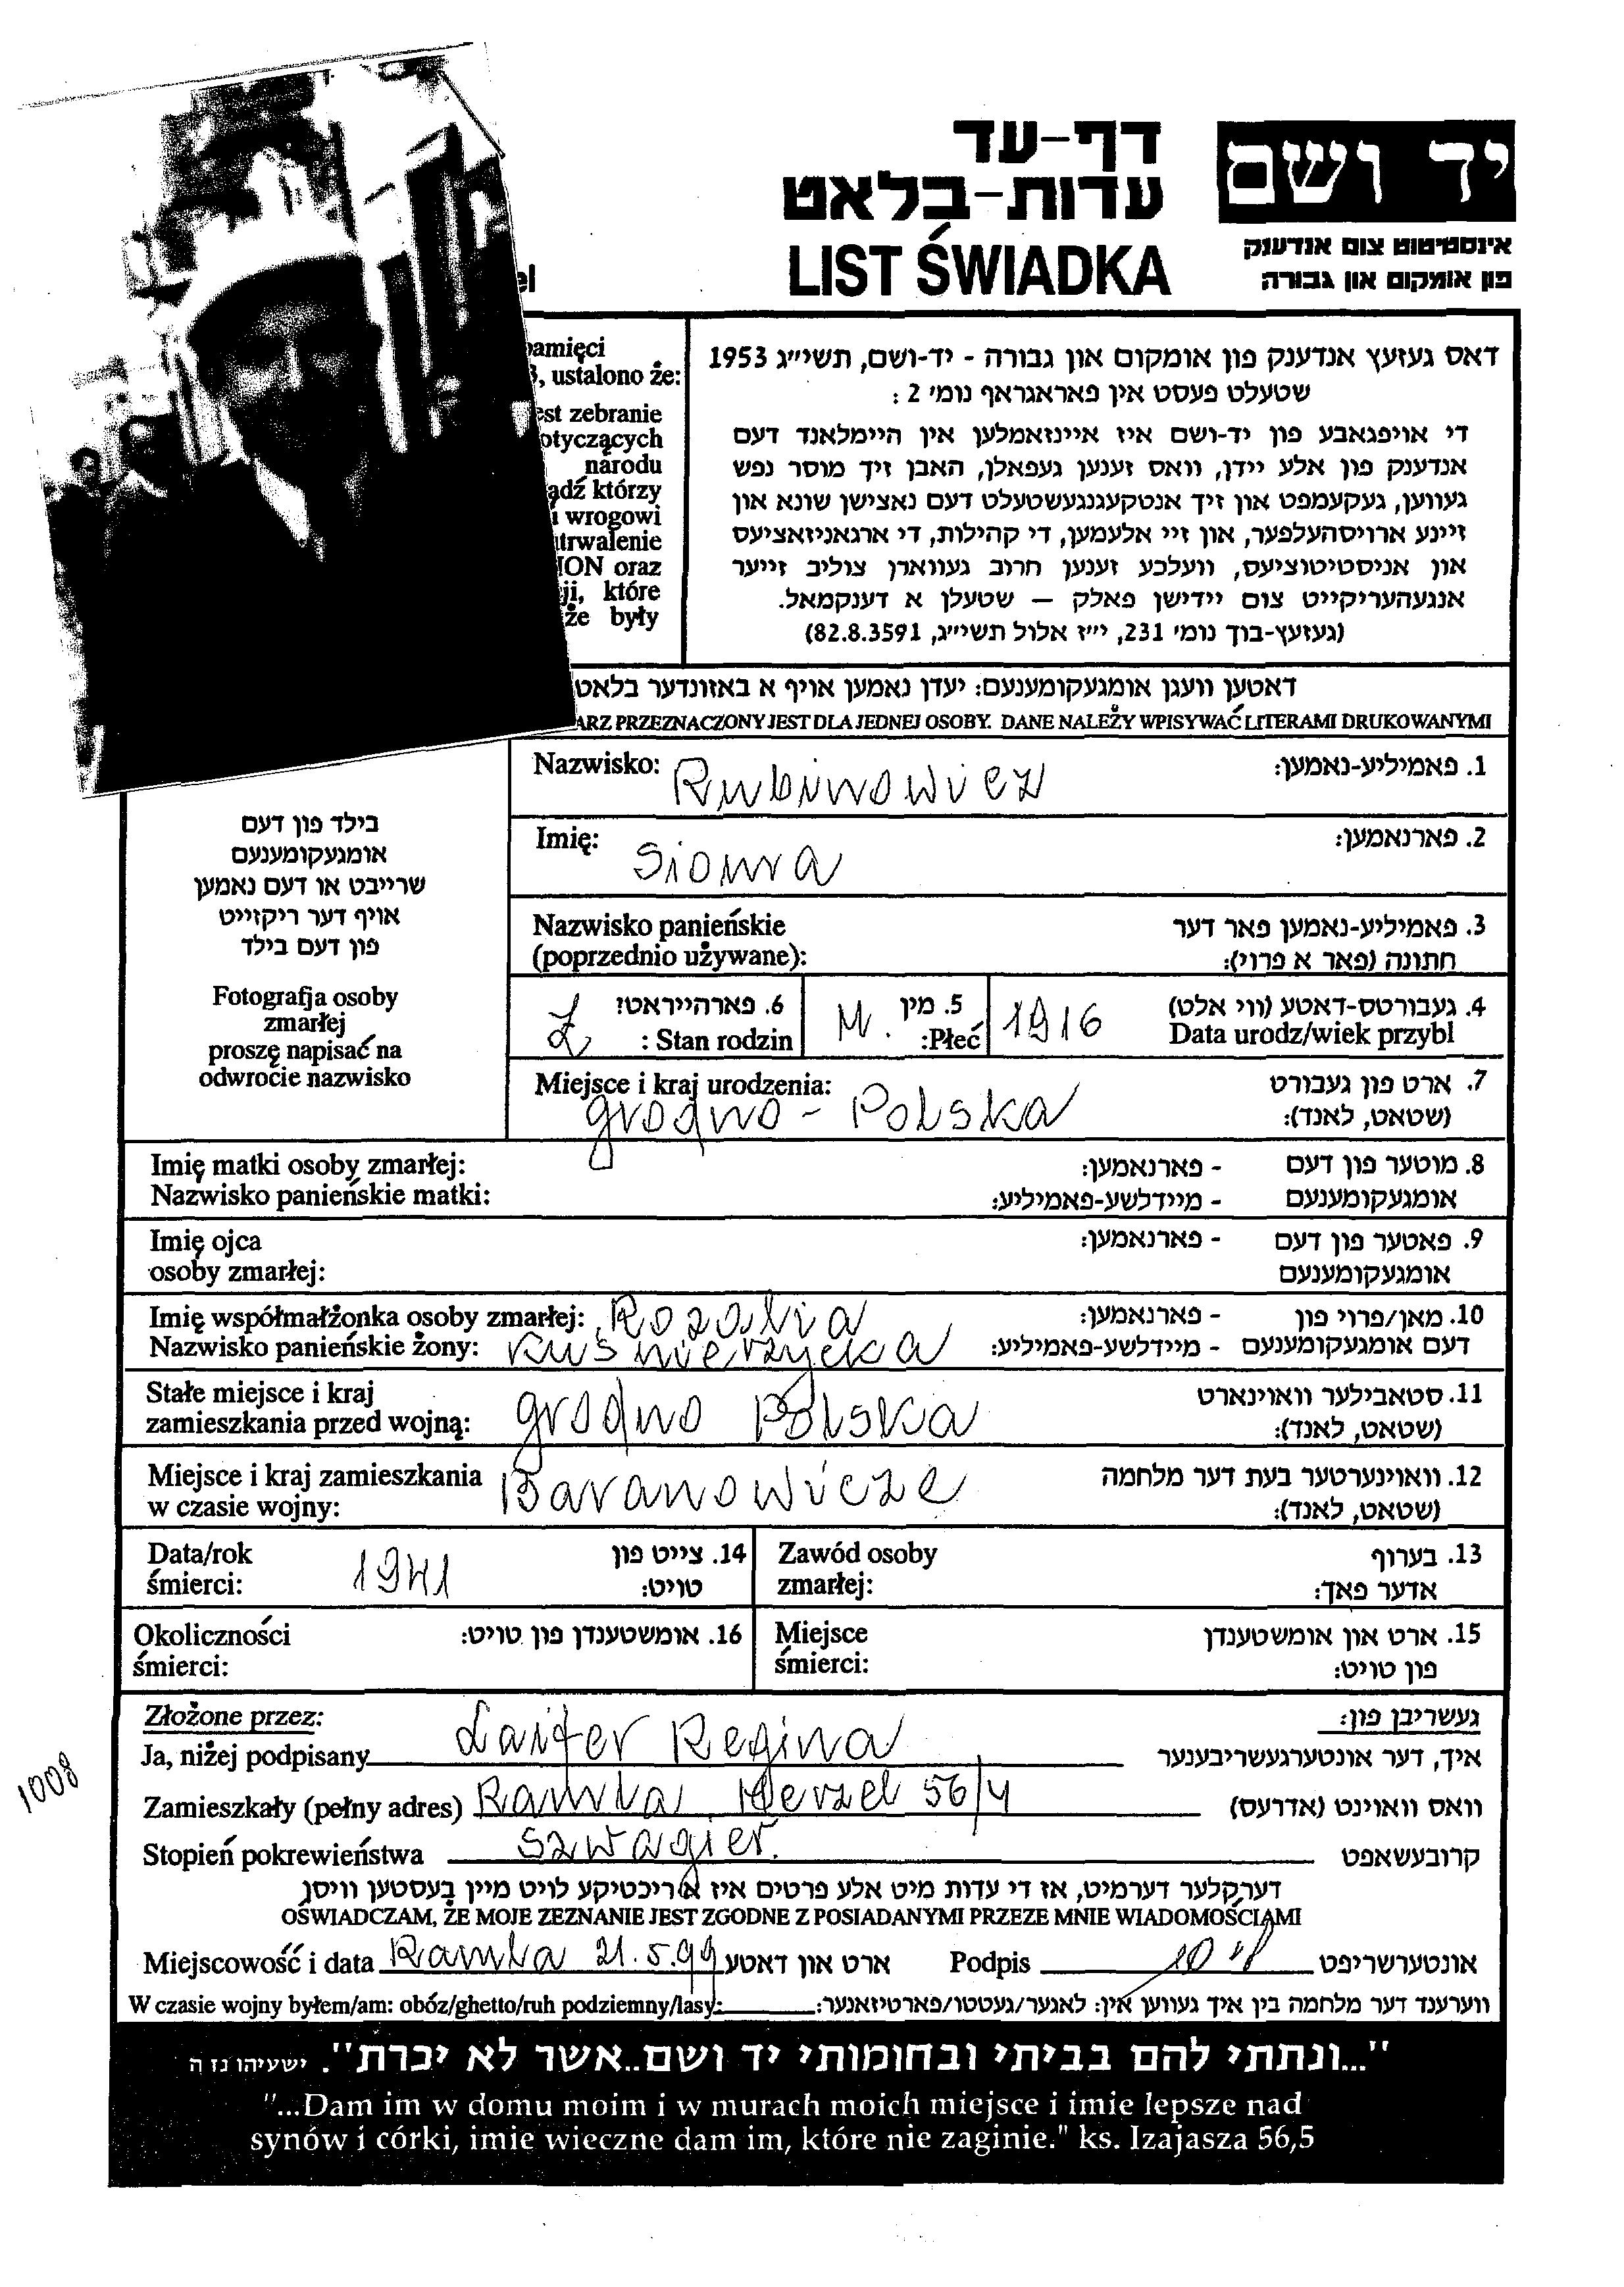 דף-עד
עדות-בלאט
LIST ŚWIADKA
יד ושם
אינסטיטוט צום אנדענק
פון אומקום און גבורה
el
pamięci
, ustalono że:
est zebranie
otyczących
narodu
ądź którzy
i wrogowi
trwalenie
ION oraz
ji, które
że były
דאס געזעץ אנדענק פון אומקום און גבורה - יד-ושם, תשי״ג 1953
שטעלט פעסט אין פאראגראף נומ׳ 2 :
די אויפגאבע פון יד-ושם איז איינזאמלען אין היימלאנד דעם
אנדענק פון אלע יידן, וואס זענען געפאלן, האבן זיך מוסר נפש
געווען, געקעמפט און זיך אנטקעגנגעשטעלט דעם נאצישן שונא און
זיינע ארויסהעלפער, און זיי אלעמען, די קהילות, די ארגאניזאציעס
און אניסטיטוציעס, וועלכע זענען חרוב געווארן צוליב זייער
אנגעהעריקייט צום יידישן פאלק — שטעלן א דענקמאל.
(געזעץ-בוך נומ׳ 231, י״ז אלול תשי״ג, 82.8.3591)
דאטען וועגן אומגעקומענעם: יעדן נאמען אויף א באזונדער בלאט
ARZ PRZEZNACZONY JEST DLA JEDNEJ OSOBY. DANE NALEŻY WPISYWAĆ LITERAMI DRUKOWANYMI
בילד פון דעם
אומגעקומענעם
שרייבט או דעם נאמען
אויף דער ריקזייט
פון דעם בילד
Fotografja osoby
zmarłej
proszę napisać na
odwrocie nazwisko
Nazwisko: Rubinowicz 1. פאמיליע-נאמען:
Imię: Sioma 2. פארנאמען:
Nazwisko panieńskie 3. פאמיליע-נאמען פאר דער
(poprzednio używane): חתונה (פאר א פרוי):
Ż 6. פארהייראט? M. 5. מין 1916 4. געבורטס-דאטע (ווי אלט)
: Stan rodzin :Płeć Data urodz/wiek przybl
Miejsce i kraj urodzenia: 7. ארט פון געבורט
grodno - Polska (שטאט, לאנד):
Imię matki osoby zmarłej: - פארנאמען: 8. מוטער פון דעם
Nazwisko panieńskie matki: - מיידלשע-פאמיליע: אומגעקומענעם
Imię ojca - פארנאמען: 9. פאטער פון דעם
osoby zmarłej: אומגעקומענעם
Imię współmałżonka osoby zmarłej: Rozalia - פארנאמען: 10. מאן/פרוי פון
Nazwisko panieńskie żony: Kuśnierzycka - מיידלשע-פאמיליע: דעם אומגעקומענעם
Stałe miejsce i kraj 11. סטאבילער וואוינארט
zamieszkania przed wojną: grodno Polska (שטאט, לאנד):
Miejsce i kraj zamieszkania Baranowicze 12. וואוינערטער בעת דער מלחמה
w czasie wojny: (שטאט, לאנד):
Data/rok 1941 14. צייט פון Zawód osoby 13. בערוף
śmierci: טויט: zmarłej: אדער פאך:
Okoliczności 16. אומשטענדן פון טויט: Miejsce 15. ארט און אומשטענדן
śmierci: śmierci: פון טויט:
Złożone przez: געשריבן פון:
Ja, niżej podpisany Laifer Regina איך, דער אונטערגעשריבענער
Zamieszkały (pełny adres) Ramla Herzel 56/4 וואס וואוינט (אדרעס)
Stopień pokrewieństwa szwagier. קרובעשאפט
דערקלער דערמיט, אז די עדות מיט אלע פרטים איז א ריכטיקע לויט מיין בעסטען וויסן
OŚWIADCZAM, ŻE MOJE ZEZNANIE JEST ZGODNE Z POSIADANYMI PRZEZE MNIE WIADOMOŚCIAMI
Miejscowość i data Ramla 21.5.99 ארט און דאטע Podpis אונטערשריפט
W czasie wojny byłem/am: obóz/ghetto/ruh podziemny/lasy: ווערענד דער מלחמה בין איך געווען אין: לאגער/געטטו/פארטיזאנער:
1008
"...ונתתי להם בביתי ובחומותי יד ושם..אשר לא יכרת". ישעיהו נז ה
"...Dam im w domu moim i w murach moich miejsce i imie lepsze nad
synów i córki, imie wieczne dam im, które nie zaginie." ks. Izajasza 56,5